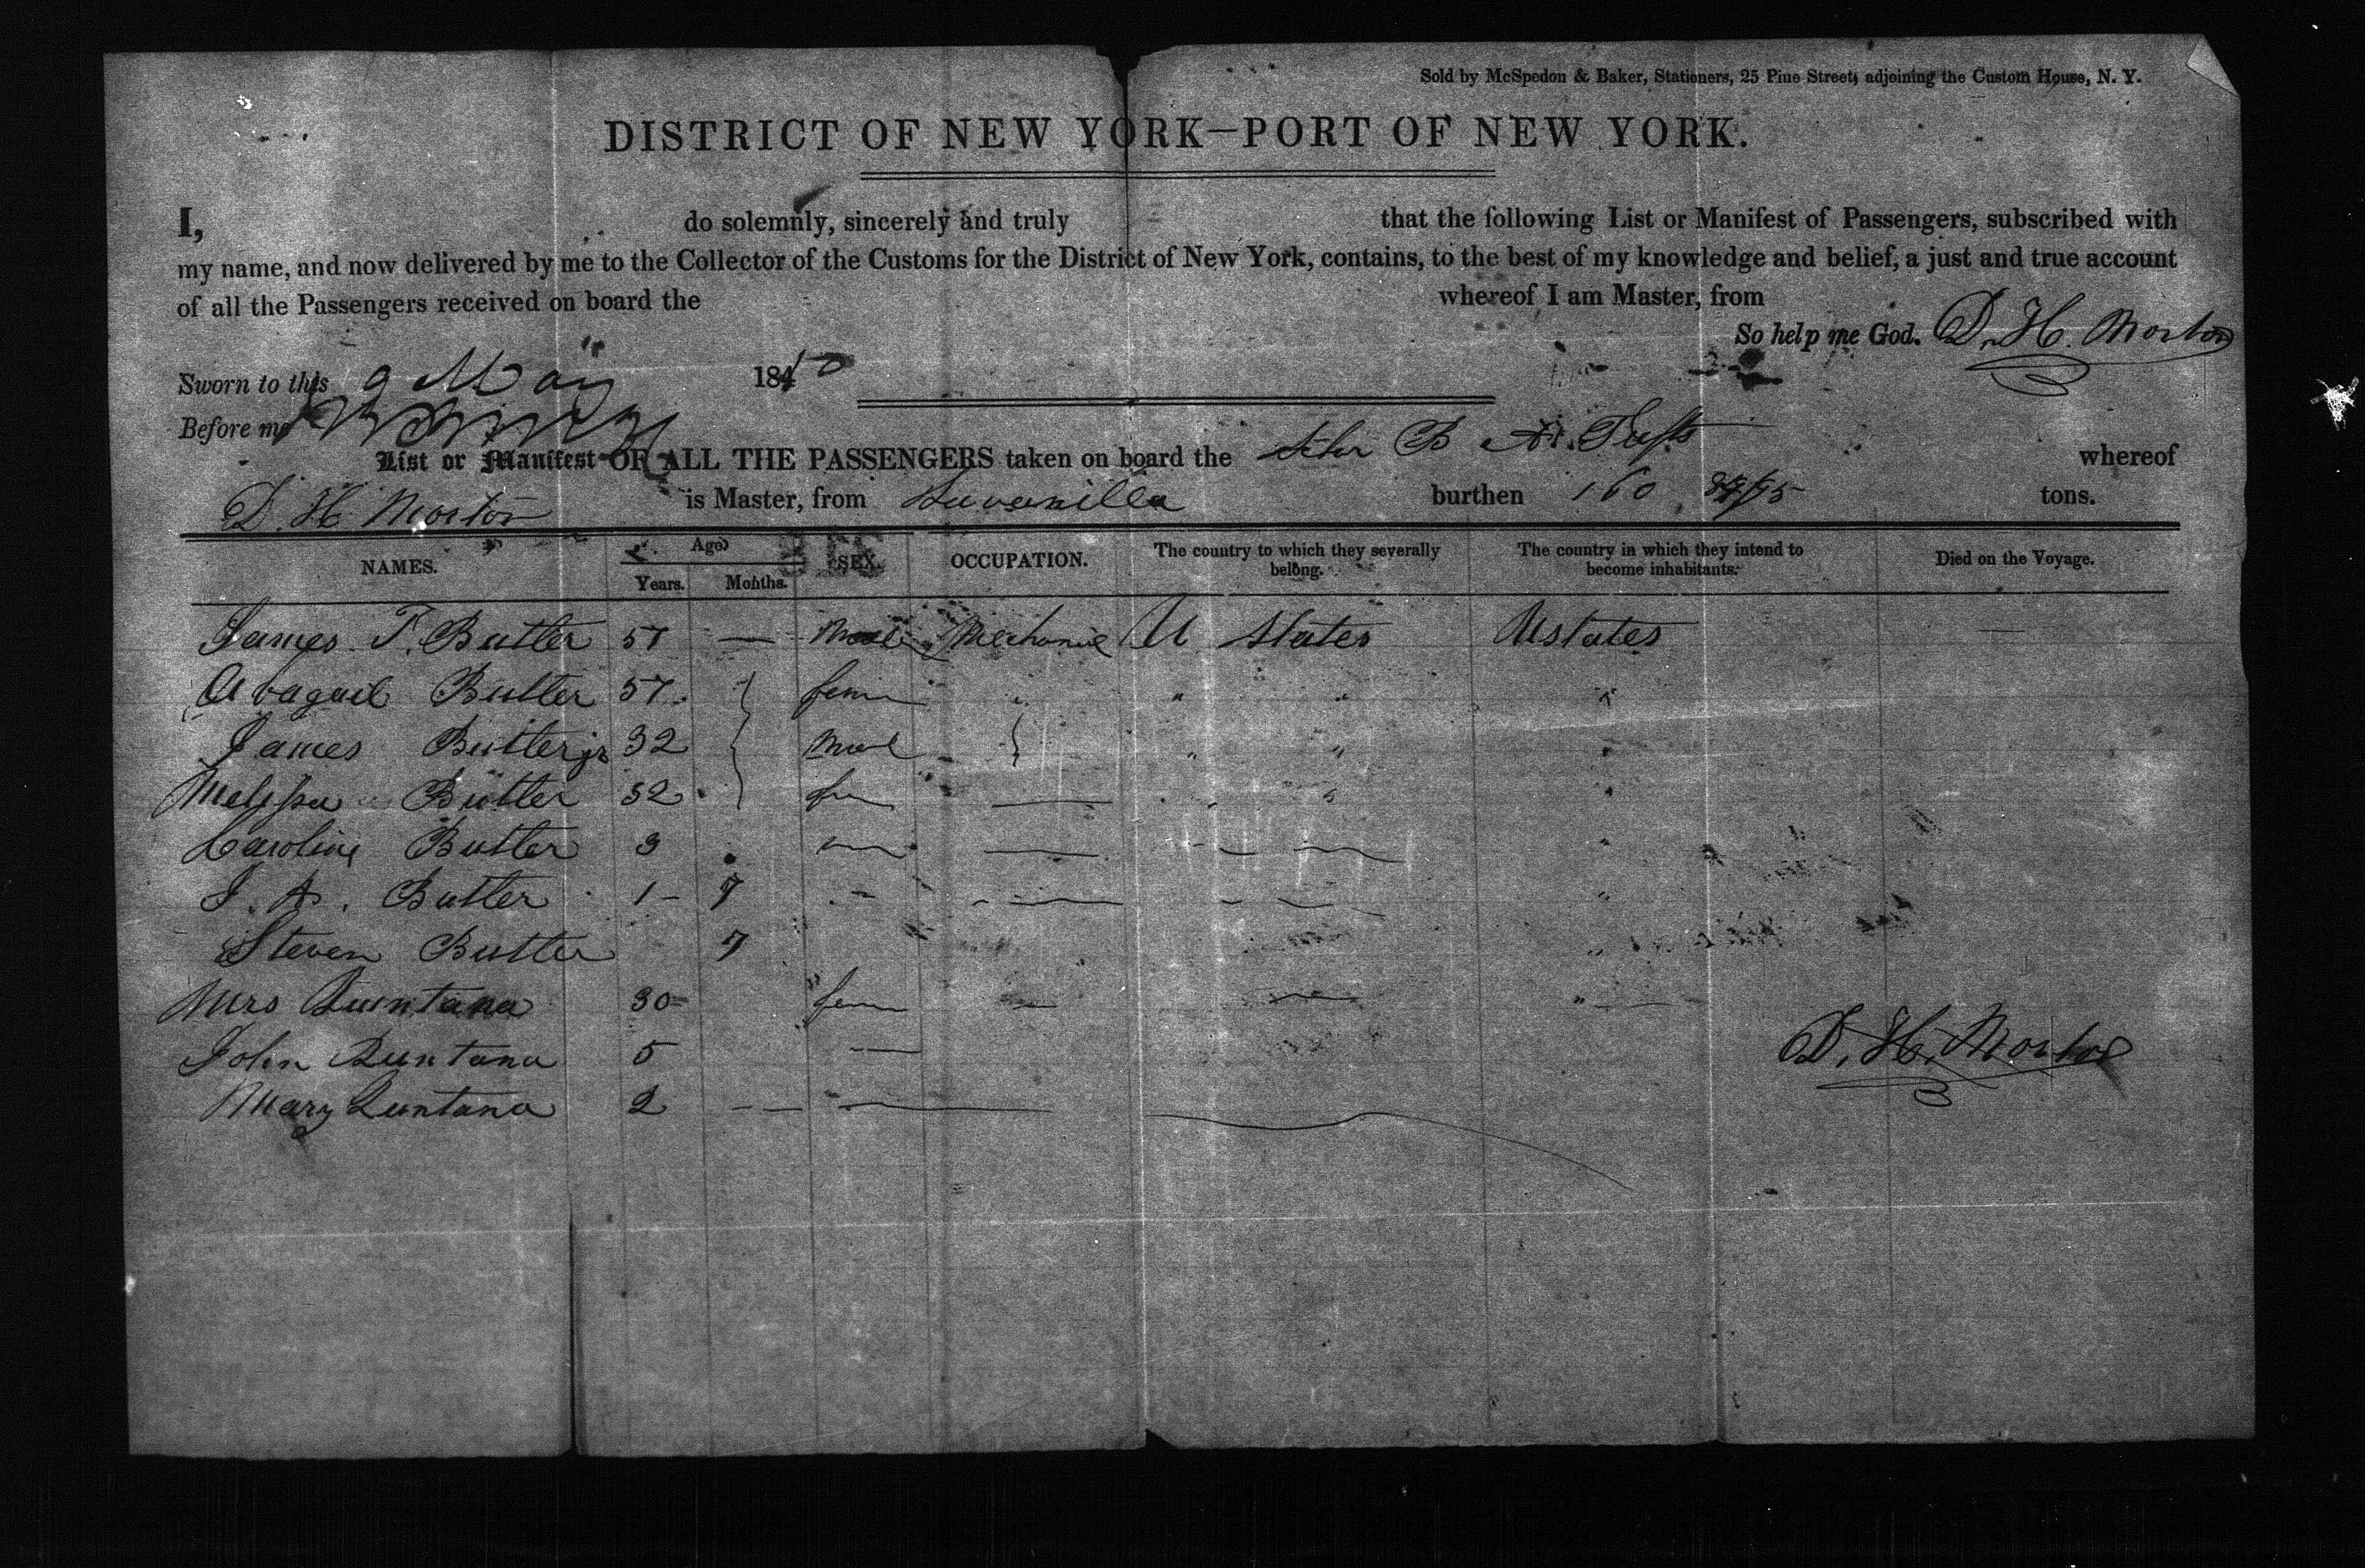 Sold by McSpedon & Baker, Stationers, 25 Pine Street, adjoining the Custom House, N. Y.
DISTRICT OF NEW YORK—PORT OF NEW YORK.
I, do solemnly, sincerely and truly that the following List or Manifest of Passengers, subscribed with
my name, and now delivered by me to the Collector of the Customs for the District of New York, contains, to the best of my knowledge and belief, a just and true account
of all the Passengers received on board the whereof I am Master, from
So help me God. D. H. Morton
Sworn to this 9 May 1850
Before me
List or Manifest OF ALL THE PASSENGERS taken on board the Schr B whereof
D. H. Morton is Master, from Savanilla burthen 160 tons.
NAMES. Age Years. Months. SEX. OCCUPATION. The country to which they severally belong. The country in which they intend to become inhabitants. Died on the Voyage.
James T. Butler 57 — Male Mechanic U States U States —
Abagail Butler 57 fem " " "
James Butler jr 32 Mal " " "
Melissa Butler 32 fem — " " "
Caroline Butler 3 — — — "
J. A. Butler 1 - 7 - — — — "
Steven Butler 7 "
Mrs Quintana 30 fem — — " —
John Quintana 5 —
D. H. Morton
Mary Quintana 2 — — —